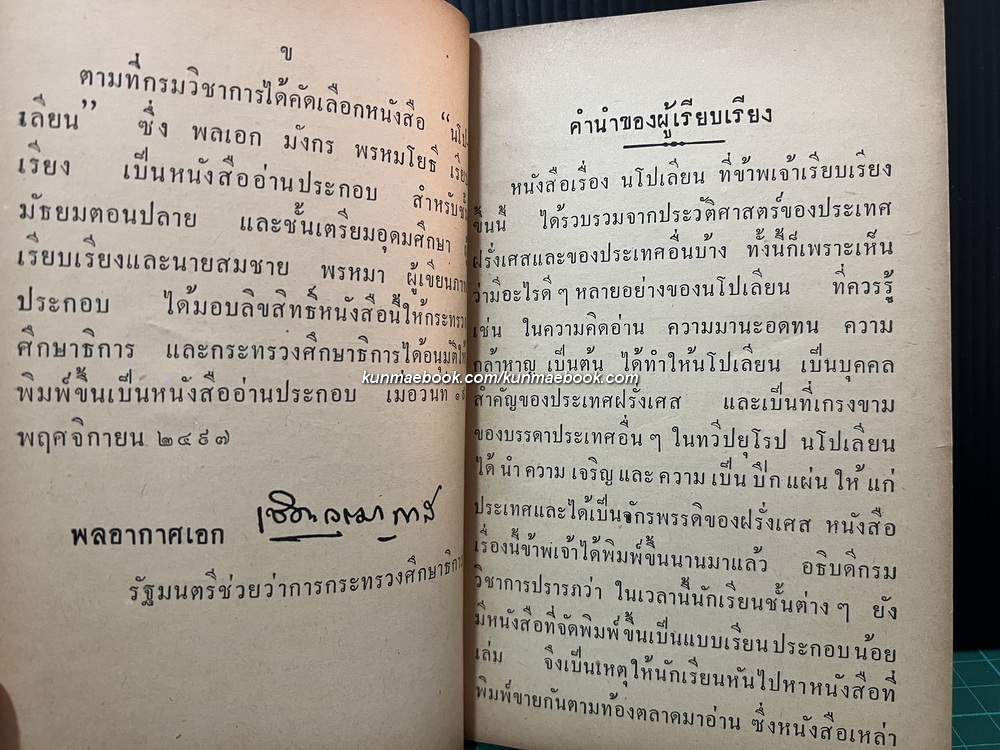 ข
ตามที่กรมวิชาการได้คัดเลือกหนังสือ “นโป-
เลียน” ซึ่ง พลเอก มังกร พรหมโยธี
เรียง เป็นหนังสืออ่านประกอบ สำหรับ
มัธยมตอนปลาย และชั้นเตรียมอุดมศึกษา
เรียบเรียงและนายสมชาย พรหมา ผู้เขียน
ประกอบ ได้มอบลิขสิทธิ์หนังสือนี้ให้กระทรวง
ศึกษาธิการ และกระทรวงศึกษาธิการได้อนุมัติให้
พิมพ์ขึ้นเป็นหนังสืออ่านประกอบ เมื่อวันที่
พฤศจิกายน ๒๔๙๗
พลอากาศเอก
รัฐมนตรีช่วยว่าการกระทรวงศึกษาธิการ
คำนำของผู้เรียบเรียง
หนังสือเรื่อง นโปเลียน ที่ข้าพเจ้าเรียบเรียง
ขึ้นนี้ ได้รวบรวมจากประวัติศาสตร์ของประเทศ
ฝรั่งเศสและของประเทศอื่นบ้าง ทั้งนี้ก็เพราะเห็น
ว่ามีอะไรดี ๆ หลายอย่างของนโปเลียน ที่ควรรู้
เช่น ในความคิดอ่าน ความมานะอดทน ความ
กล้าหาญ เป็นต้น ได้ทำให้นโปเลียน เป็นบุคคล
สำคัญของประเทศฝรั่งเศส และเป็นที่เกรงขาม
ของบรรดาประเทศอื่น ๆ ในทวีปยุโรป นโปเลียน
ได้ นำ ความ เจริญ และ ความ เป็น ปึก แผ่น ให้ แก่
ประเทศและได้เป็นจักรพรรดิของฝรั่งเศส หนังสือ
เรื่องนี้ข้าพเจ้าได้พิมพ์ขึ้นนานมาแล้ว อธิบดีกรม
วิชาการปรารภว่า ในเวลานี้นักเรียนชั้นต่าง ๆ ยัง
มีหนังสือที่จัดพิมพ์ขึ้นเป็นแบบเรียนประกอบน้อย
เล่ม จึงเป็นเหตุให้นักเรียนหันไปหาหนังสือที่
พิมพ์ขายกันตามท้องตลาดมาอ่าน ซึ่งหนังสือเหล่า
kunmaebook.com/kunmaebook.com